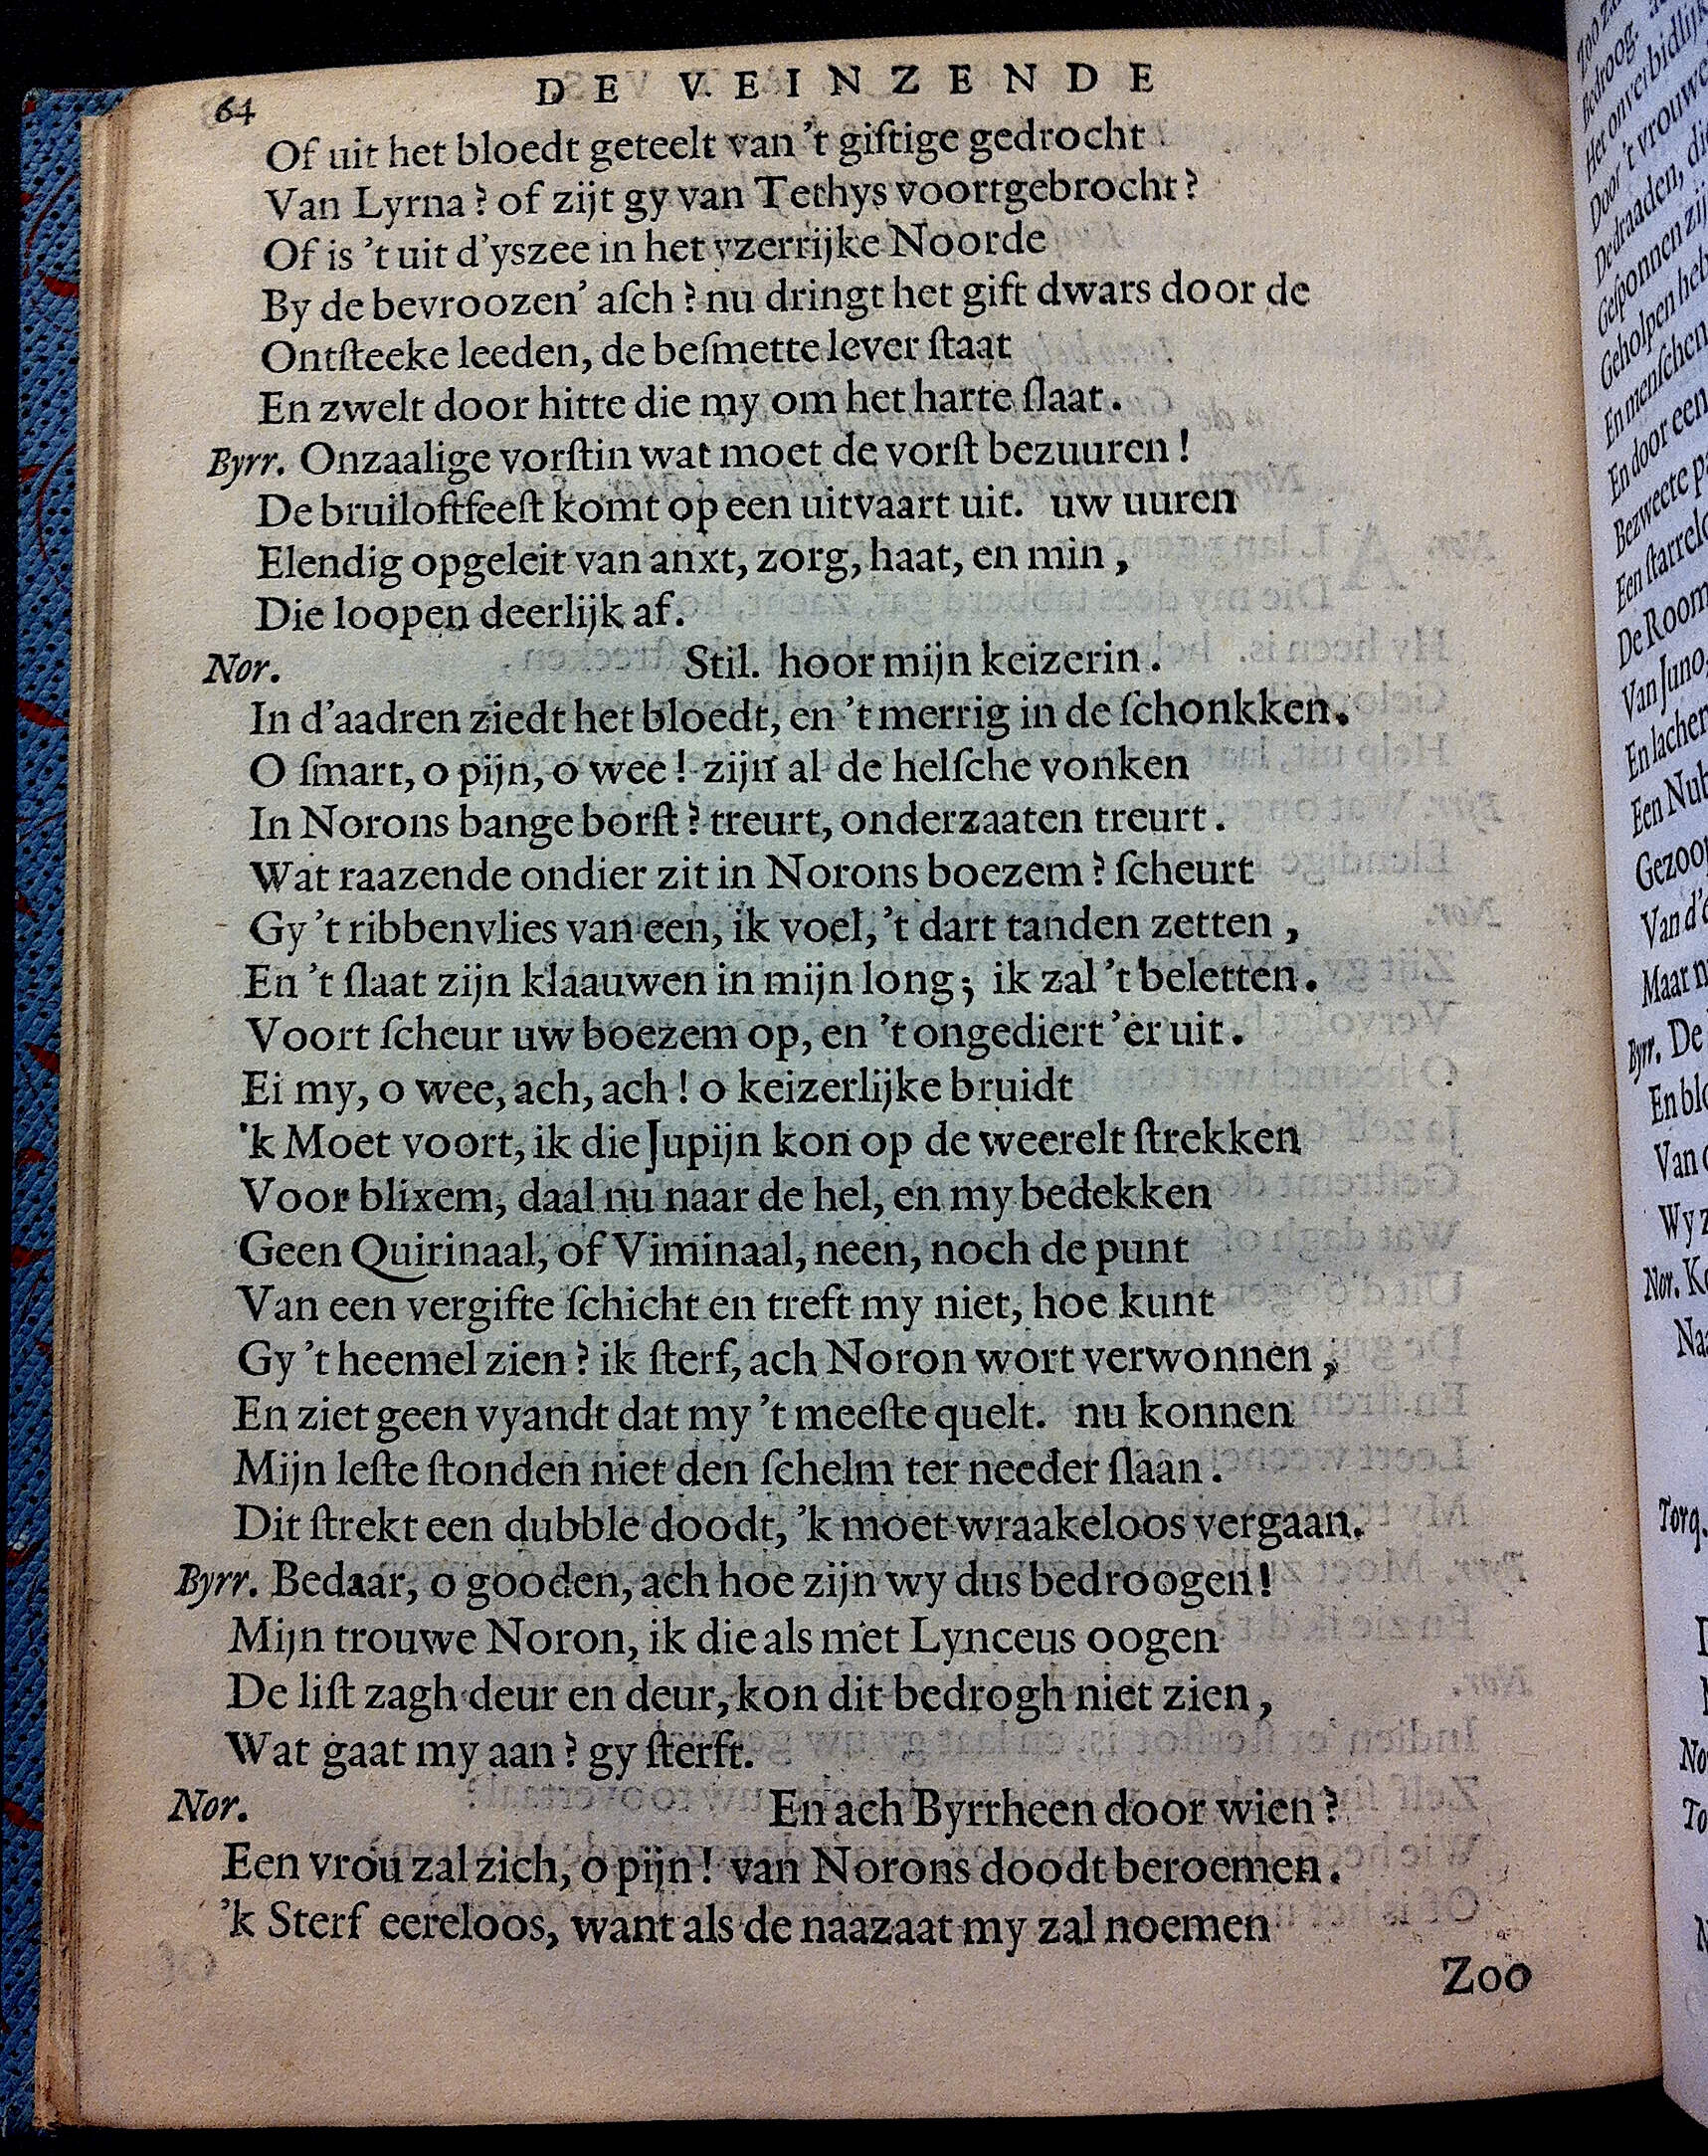 64
DE VEINZENDE
Of uit het bloedt geteelt van 't giftige gedrocht
Van Lyrna? of zijt gy van Tethys voortgebrocht?
Of is 't uit d'yszee in het yzerrijke Noorde
By de bevroozen' aſch? nu dringt het gift dwars door de
Ontſteeke leeden, de beſmette lever ſtaat
En zwelt door hitte die my om het harte ſlaat.
Byrr. Onzaalige vorſtin wat moet de vorſt bezuuren!
De bruiloftfeeſt komt op een uitvaart uit. uw uuren
Elendig opgeleit van anxt, zorg, haat, en min,
Die loopen deerlijk af.
Nor. Stil. hoor mijn keizerin.
In d'aadren ziedt het bloedt, en 't merrig in de ſchonkken.
O ſmart, o pijn, o wee! zijn al de helſche vonken
In Norons bange borſt? treurt, onderzaaten treurt.
Wat raazende ondier zit in Norons boezem? ſcheurt
Gy 't ribbenvlies van een, ik voel, 't dart tanden zetten,
En 't ſlaat zijn klaauwen in mijn long; ik zal 't beletten.
Voort ſcheur uw boezem op, en 't ongediert 'er uit.
Ei my, o wee, ach, ach! o keizerlijke bruidt
'k Moet voort, ik die Jupijn kon op de weerelt ſtrekken
Voor blixem, daal nu naar de hel, en my bedekken
Geen Quirinaal, of Viminaal, neen, noch de punt
Van een vergifte ſchicht en treft my niet, hoe kunt
Gy 't heemel zien? ik ſterf, ach Noron wort verwonnen,
En ziet geen vyandt dat my 't meeſte quelt. nu konnen
Mijn leſte ſtonden niet den ſchelm ter needer ſlaan.
Dit ſtrekt een dubble doodt, 'k moet wraakeloos vergaan.
Byrr. Bedaar, o gooden, ach hoe zijn wy dus bedroogen!
Mijn trouwe Noron, ik die als met Lynceus oogen
De liſt zagh deur en deur, kon dit bedrogh niet zien,
Wat gaat my aan? gy ſterft.
Nor. En ach Byrrheen door wien?
Een vrou zal zich, o pijn! van Norons doodt beroemen.
'k Sterf eereloos, want als de naazaat my zal noemen
Zoo